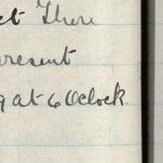 There
present
at 6 Oclock